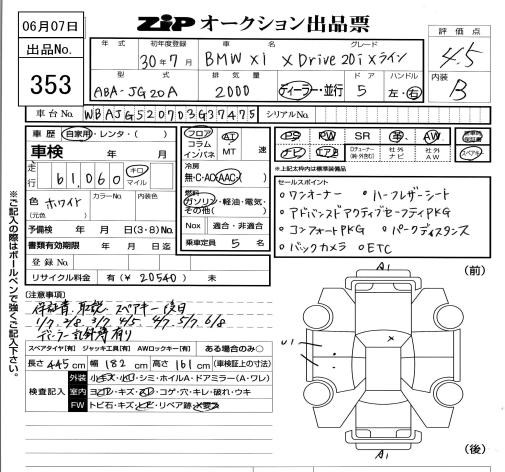 06月07日
出品No.
353
ZIP オークション出品票
評価点
4.5
内装
B
年式 初年度登録 車名 グレード
30年7月 BMW X1 X Drive 20i Xライン
型式 排気量 ドア ハンドル
ABA-JG20A 2000 ディーラー・並行 5 左・右
車台No. WBAJG520703G37475 シリアルNo.
車歴 自家用・レンタ・( )
車検 年 月
走行 61,060 キロ マイル
色 ホワイト カラーNo. 内装色
(元色)
予備検 年 月 日(3・8)No.
書類有効期限 年 月 日迄
登録No.
リサイクル料金 有(¥20540) 未
フロア コラム インパネ
AT MT 速
冷房
無・C・AC(AAC)
燃料
ガソリン・軽油・電気・その他( )
Nox 適合・非適合
乗車定員 5 名
PS PW SR 革 AW
ナビ エアB 社外ナビ 社外AW スペアキー
※上記太枠内は装備品
セールスポイント
○ワンオーナー ○ハーフレザーシート
○アドバンスドアクティブセーフティPKG
○コンフォートPKG ○パークディスタンス
○バックカメラ ○ETC
[注意事項]
保証書、取説、スペアキー後日
1/7. 2/8 3/7 4/5. 4/7. 5/7. 6/8
ディーラー記録簿有り
スペアタイヤ[有] ジャッキ工具[有] AWロックキー[有] ある場合のみ○
長さ 445cm 幅 182cm 高さ 161cm (車検証上の寸法)
検査記入
外装 小キズ・小凹・シミ・ホイルA・ドアミラー(A・ワレ)
室内 ヨゴレ・キズ・スレ・コゲ・穴・キレ・破れ・ウキ
FW トビ石・キズ・ヒビ・リペア跡・X要す
※ご記入の際はボールペンで強くご記入下さい。
A1
(前)
U1
X
A1
(後)